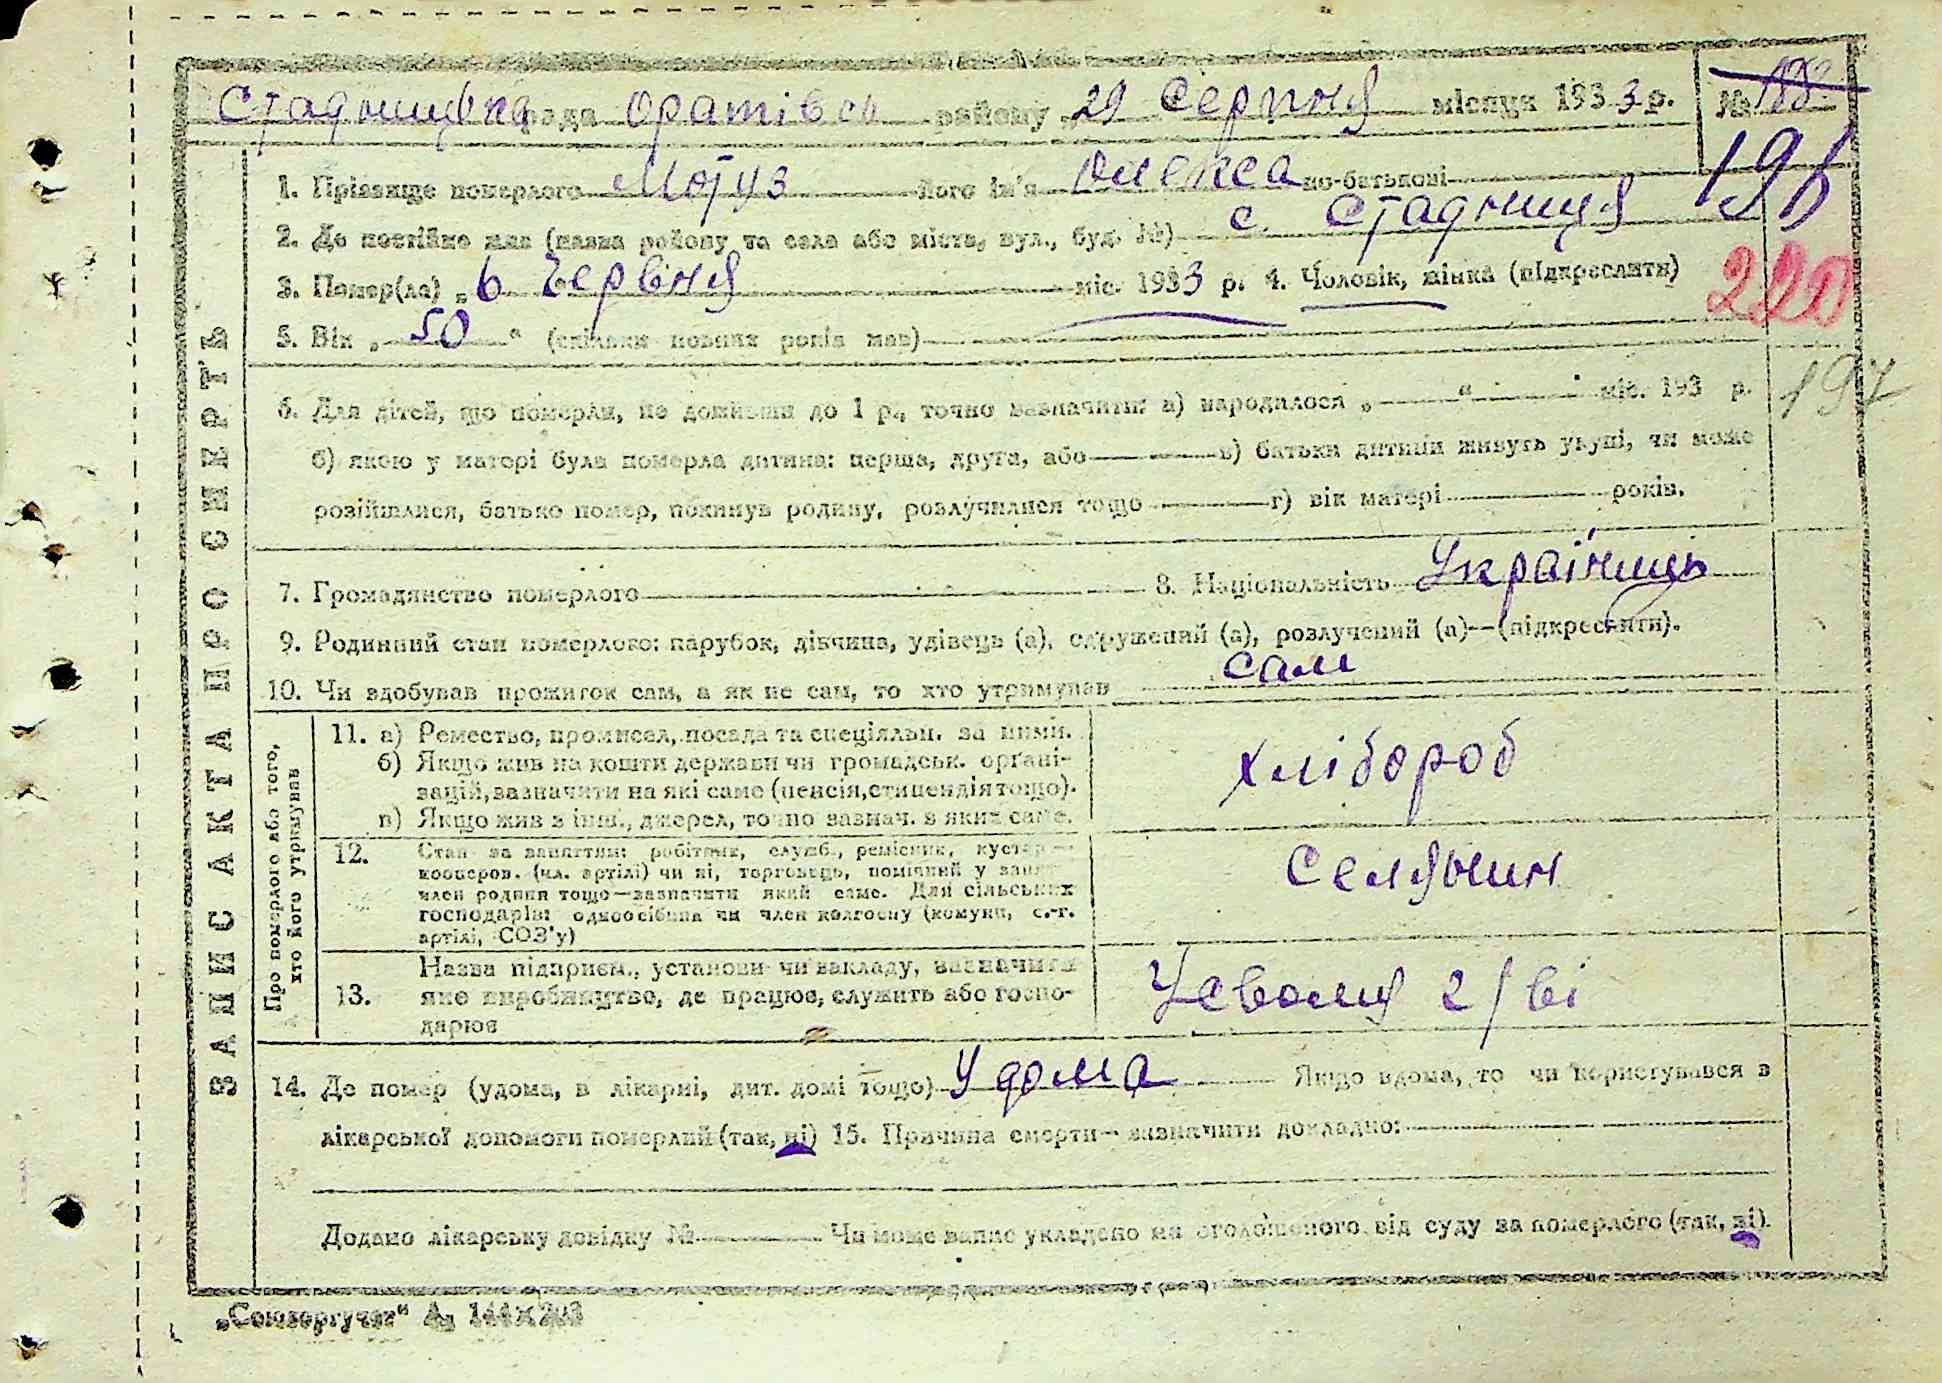 Стадницька рада Оратівськ району „29 Серпня місяця 1933 р. № 188
191
1. Прізвище померлого Мотуз його ім'я Олекса по-батькові
2. Де постійно жив (назва району та села або міста, вул., буд. №) с. Стадниця
3. Помер(ла) „6 Червіня міс. 1933 р. 4. Чоловік, жінка (підкреслити)
220
5. Вік „50“ (скільки повних років мав)
6. Для дітей, що померли, не доживши до 1 р., точно зазначити: а) народилося „ “ міс. 193 р.
197
б) якою у матері була померла дитина: перша, друга, або в) батьки дитини живуть укупі, чи може
розійшлися, батько помер, покинув родину, розлучилися тощо г) вік матері років.
7. Громадянство померлого 8. Національність Українець
9. Родинний стан померлого: парубок, дівчина, удівець (а), одружений (а), розлучений (а)—(підкреслити).
10. Чи здобував прожиток сам, а як не сам, то хто утримував сам
ЗАПИСАКТА ПРО СМЕРТЬ
Про померлого або того,
хто його утримував
11. а) Ремество, промисел, посада та спеціяльн. за ними.
б) Якщо жив на кошти держави чи громадськ. органі-
зацій, зазначити на які саме (пенсія, стипендія тощо).
в) Якщо жив з інш., джерел, точно зазнач. з яких саме.
хлібороб
12. Стан за заняттям: робітник, служб., ремісник, кустар—
кооперов. (чл. артілі) чи ні, торговець, помічний у занят.
член родини тощо—зазначити який саме. Для сільських
господарів: одноосібник чи член колгоспу (комуни, с.-г.
артілі, СОЗ'у)
Селянин
13. Назва підприєм., установи чи закладу, зазначити
яке виробництво, де працює, служить або госпо-
дарює
14. Де помер (удома, в лікарні, дит. домі тощо) У дома Якщо вдома, то чи користувався з
лікарської допомоги померлий (так, ні) 15. Причина смерти— зазначити докладно:
Додано лікарську довідку № Чи може запис укладено на оголошеного від суду за померлого (так, ні).
„Союзоргучет“ А